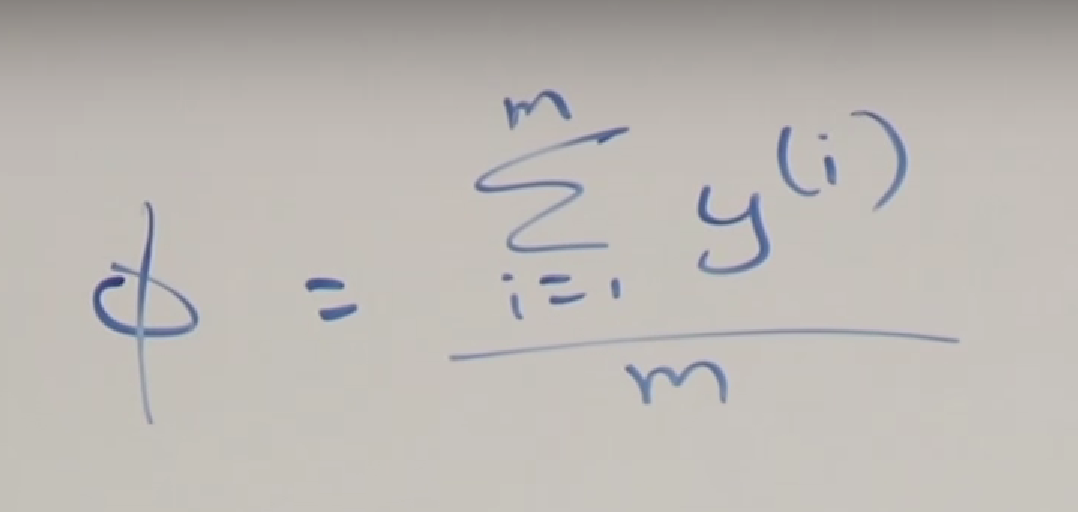 ϕ = \frac{\sum_{i=1}^{m} y^{(i)}}{m}